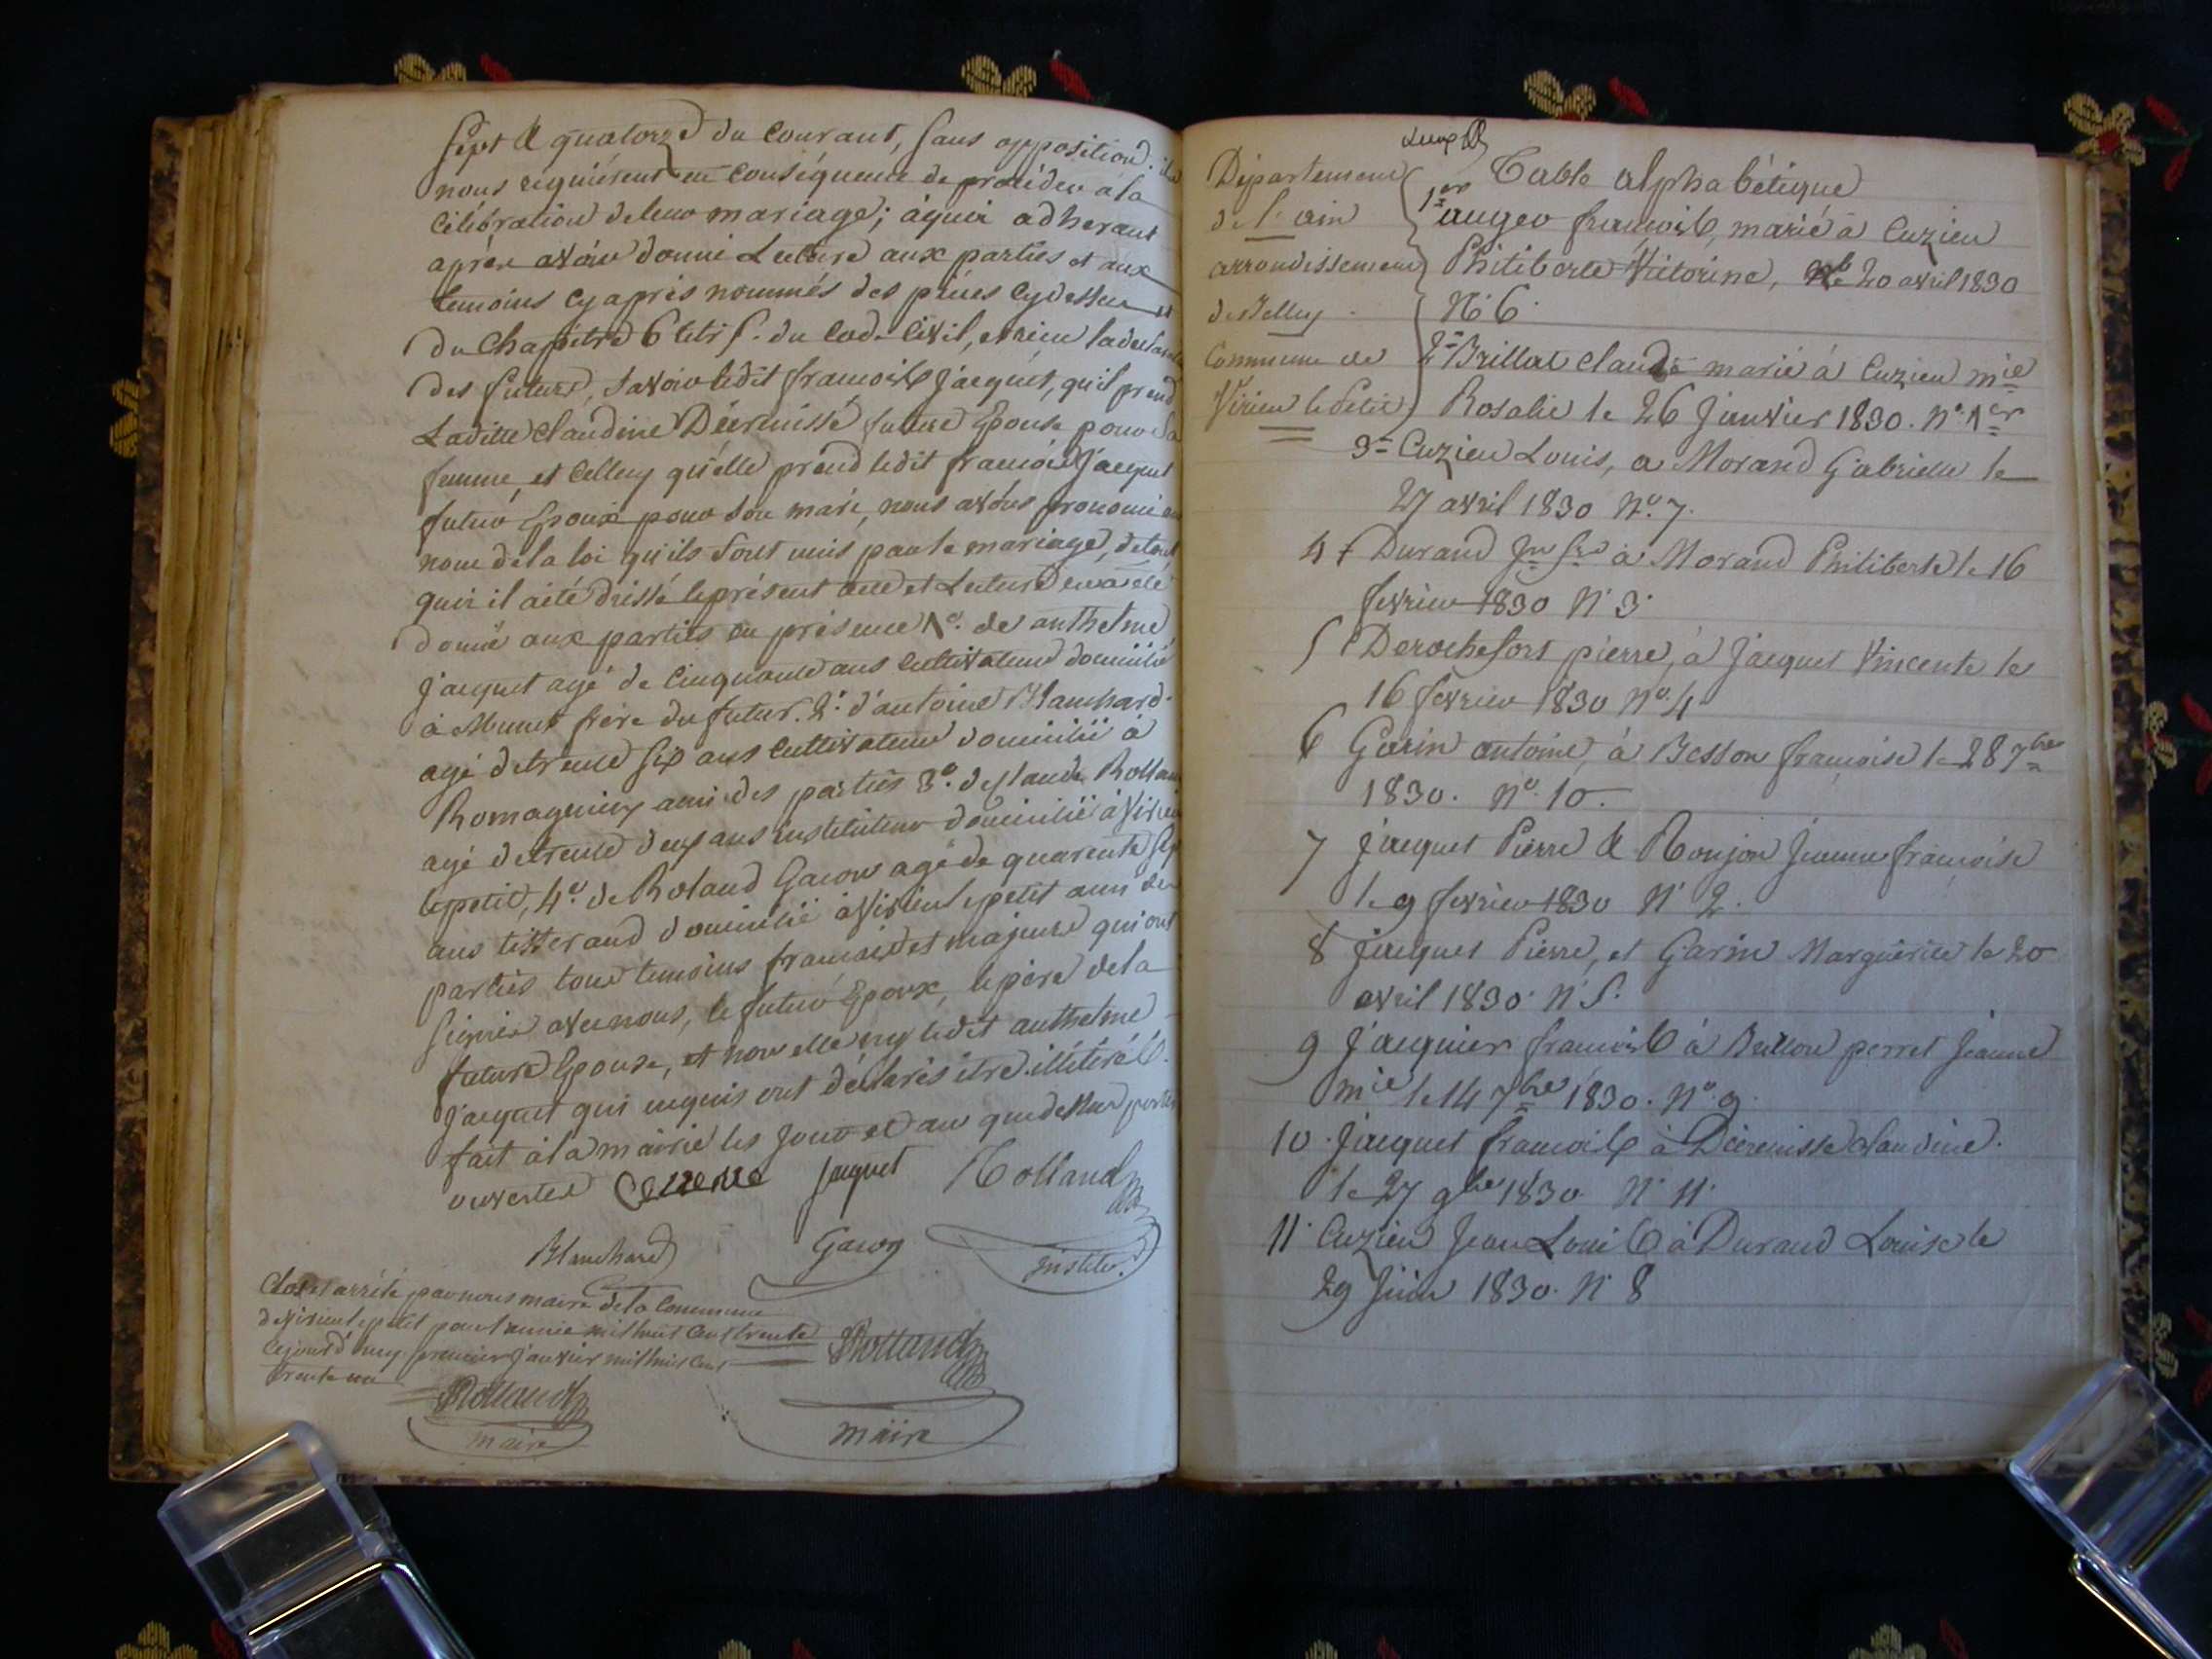 Sept & quatorze du Courant, sans opposition. ils
nous requièrent en conséquence de procéder à la
Célébration de leur mariage; àquoi adherant
après avoir donné Lecture aux parties et aux
temoins cy après nommés des pièces cy dessus et
du Chapitre 6 titre 5. du Code Civil, et reçu la declaration
des futurs, Savoir ledit françois Jacquet, qu'il prend
Ladite Claudine Décrenisse future Epouse pour Sa
femme, et Celle cy qu'elle prend ledit françois Jacquet
futur Epoux pour Son mari, nous avons prononcé au
nom de la loi qu'ils Sont unis par le mariage, de tout
quoi il a été dressé le présent acte et Lecture en a été
donné aux parties en présence 1.º de anthelme
Jacquet agé de Cinquante ans Cultivateur domicilié
à Munet frère du futur. 2.º d'antoine Blanchard
agé de trente Six ans Cultivateur domicilié à
Romagnieu ami des parties 3.º de Claude Rolland
agé de trente deux ans instituteur domicilié à Virieu
lepetit, 4.º de Roland Gacon agé de quarente Sept
ans tisserand domicilié à Virieu lepetit ami des
parties tous temoins français et majeurs qui ont
Signés avec nous, le futur Epoux, le père de la
future Epouse, et non elle ny ledit anthelme
Jacquet qui requis ont déclarés être illitérés.
fait à la mairie les Jour et an que dessus portes
ouvertes Jacquet Rolland
Blanchard Gacon institur.
Clos et arrété par nous maire de la Commune
de Virieu lepetit pour l'année mil huit Cent trente
Cejourd'huy premier Janvier mil huit Cent
trente un
Rolland Rolland
maire maire
Département
de l'ain
arrondissement
de Belley
Commune de
Virieu le petit
Table alphabétique
1er auger françois, marié à Cuzieu
Philiberte Victorine, le 20 avril 1830
N.º 6.
2= Brillat Claude marié à Cuzieu mie
Rosalie le 26 Janvier 1830. N.º 1er
3= Cuzieu Louis, a Morand Gabrielle le
27 avril 1830 N.º 7.
4 Durand Jn. fs. à Morand Philiberte le 16
fevrier 1830 N.º 3.
5 Derochefort pierre, à Jacquet Vincente le
16 fevrier 1830 N.º 4
6 Garin antoine, à Besson françoise le 28 7bre
1830. N.º 10.
7 Jacquet Pierre & Roujon Jeanne françoise
le 9 fevrier 1830 N.º 2.
8 Jacquet Pierre, et Garin Marguerite le 20
avril 1830. N.º 5.
9 Jacquier françois à Brillon perret Jeanne
mie le 14 7bre 1830. N.º 9.
10. Jacquet françois à Décrenisse Claudine.
le 27 9bre 1830. N.º 11.
11. Cuzieu Jean Louis à Durand Louise le
29 Juin 1830. N.º 8